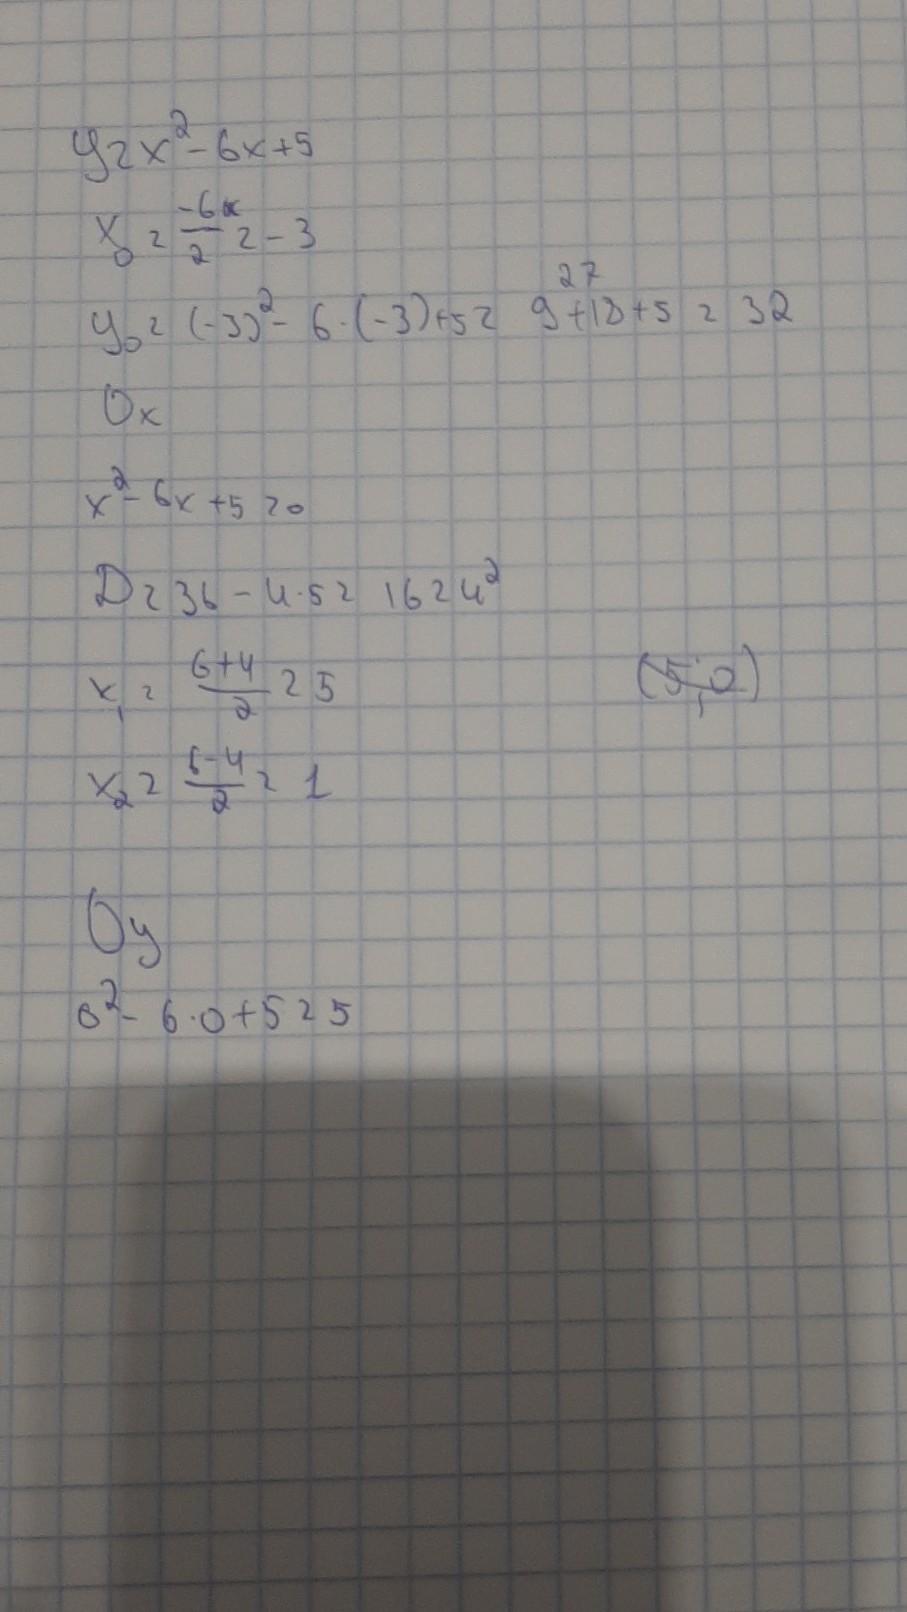 y = x² - 6x + 5
x₀ = -6/2 = -3
y₀ = (-3)² - 6·(-3) + 5 = 9 + 18 + 5 = 32
27
Ox
x² - 6x + 5 = 0
D = 36 - 4·5 = 16 = 4²
x₁ = (6+4)/2 = 5
(5,0)
x₂ = (6-4)/2 = 1
Oy
0² - 6·0 + 5 = 5